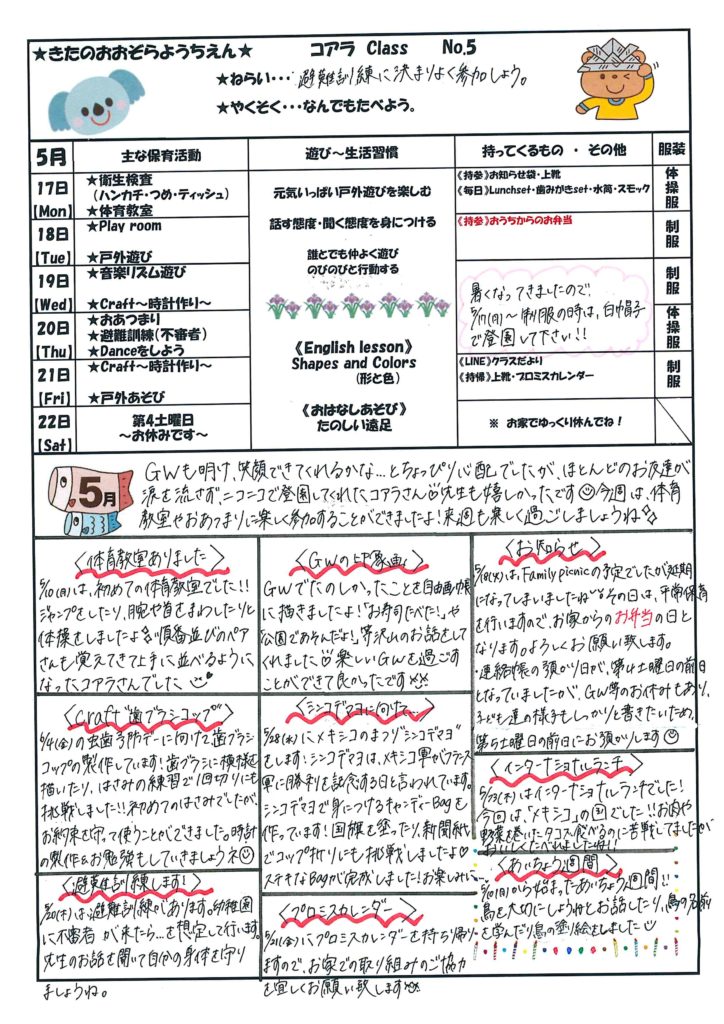 ★きたのおおぞらようちえん★ コアラ Class No.5
★ねらい・・・避難訓練に決まりよく参加しよう。
★やくそく・・・なんでもたべよう。
5月 主な保育活動 遊び～生活習慣 持ってくるもの ・ その他 服装
17日
【Mon】
★衛生検査
(ハンカチ・つめ・ティッシュ)
★体育教室
《持参》お知らせ袋・上靴
《毎日》Lunchset・歯みがきset・水筒・スモック
体操服
18日
【Tue】
★Play room
★戸外遊び
《持参》おうちからのお弁当
制服
19日
【Wed】
★音楽リズム遊び
★Craft～時計作り～
制服
20日
【Thu】
★おあつまり
★避難訓練(不審者)
★Danceをしよう
体操服
21日
【Fri】
★Craft～時計作り～
★戸外あそび
《LINE》クラスだより
《持帰》上靴・プロミスカレンダー
制服
22日
【Sat】
第4土曜日
～お休みです～
※ お家でゆっくり休んでね！
元気いっぱい戸外遊びを楽しむ
話す態度・聞く態度を身につける
誰とでも仲よく遊び
のびのびと行動する
《English lesson》
Shapes and Colors
(形と色)
《おはなしあそび》
たのしい遠足
暑くなってきましたので、
5/17(月)～制服の時は、白帽子
で登園して下さい！！
5月
GWも明け、笑顔できてくれるかな…とちょっぴり心配でしたが、ほとんどのお友達が
涙を流さず、ニコニコで登園してくれたコアラさん 先生も嬉しかったです 今週は、体育
教室やおあつまりに楽しく参加することができましたよ！来週も楽しく過ごしましょうね
〈体育教室ありました〉
5/10(月)は、初めての体育教室でした！！
ジャンプをしたり、腕や首をまわしたりと
体操をしましたよ 順番並びのペア
さんも覚えてきて上手に並べるように
なったコアラさんでした
〈GWの印象画〉
GWでたのしかったことを自由画帳
に描きましたよ！「お寿司たべた！」や
「公園であそんだよ！」等沢山のお話をして
くれました 楽しいGWを過ごす
ことができて良かったです
〈お知らせ〉
5/18(火)は、Family picnicの予定でしたが延期
になってしまいましたね その日は、平常保育
を行いますので、お家からのお弁当の日と
なります。よろしくお願い致します。
・連絡帳の預かり日が、第4土曜日の前日
となっていましたが、GW等のお休みもあり、
子ども達の様子もしっかりと書きたいため、
第5土曜日の前日にお預かりします
〈Craft "歯ブラシコップ"〉
6/4(金)の虫歯予防デーに向けて歯ブラシ
コップの製作しています！歯ブラシに模様を
描いたり、はさみの練習で1回切りにも
挑戦しました！！初めてのはさみでしたが、
お約束を守って使うことができました。時計
の製作&お勉強もしていきましょうネ
〈シンコデマヨに向けて…〉
5/28(金)にメキシコのまつり"シンコデマヨ"を
します！シンコデマヨは、メキシコ軍がフランス
軍に勝利を記念する日と言われています。
シンコデマヨで身につけるキャンディーBagを
作っています！国旗を塗ったり、新聞紙
でコップ折りにも挑戦しましたよ
ステキなBagが完成しました！お楽しみに…
〈インターナショナルランチ〉
5/13(木)はインターナショナルランチでした！
今回は、「メキシコ」の国でした！！お肉や
野菜を巻いたタコス食べるのに苦戦してましたが
おいしくたべれましたね！！
〈避難訓練します！〉
5/20(木)は避難訓練があります。幼稚園
に不審者が来たら…を想定して行います。
先生のお話を聞いて自分の身体を守り
ましょうね。
〈プロミスカレンダー〉
5/21(金)にプロミスカレンダーを持ち帰り
ますので、お家での取り組みのご協力
を宜しくお願い致します
〈あいちょう週間〉
5/10(月)から始まったあいちょう週間！！
鳥を大切にしようねとお話したり、鳥の名前
を学んだり鳥の塗絵をしました